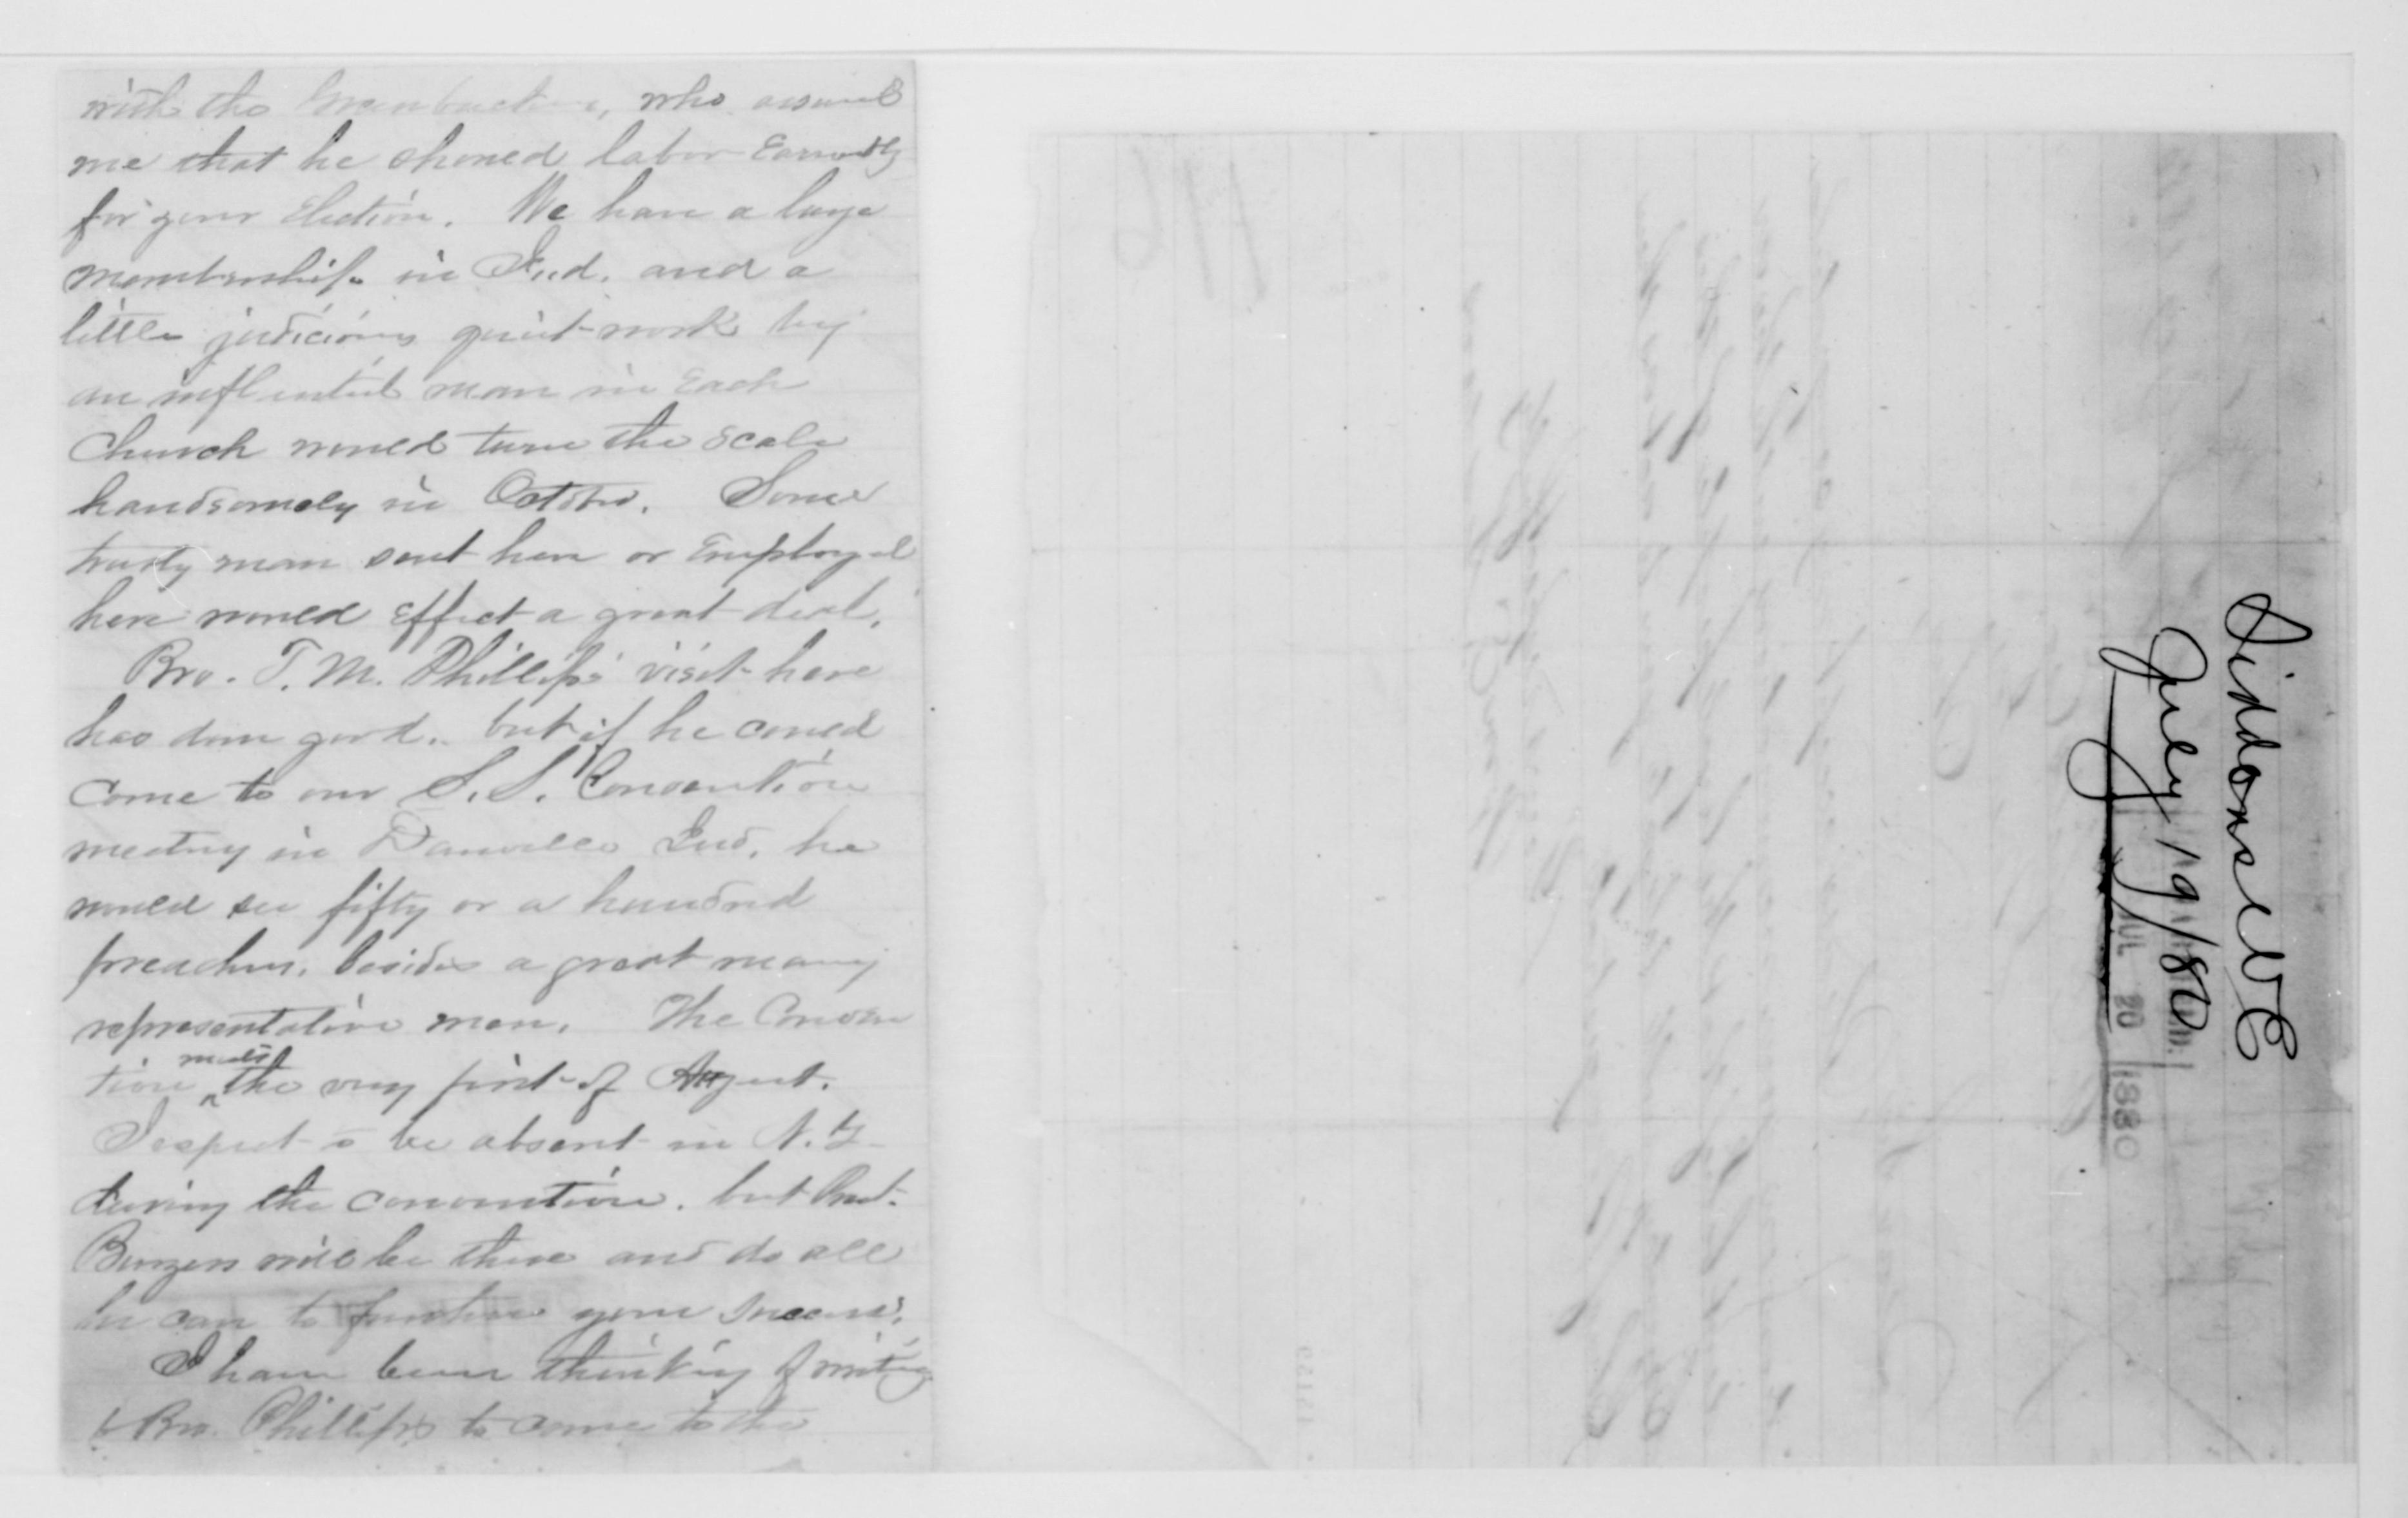 with the Greenbackers, who assured
me that he should labor Earnestly
for your Election. We have a large
membership in Ind. and a
little judicious quiet work by
an influential man in Each
Church would turn the scale
handsomely in October. Some
trusty man sent here or Employed
here would Effect a great deal.
Bro. T. M. Phillips' visit here
has done good. but if he could
come to our S. S. Convention
meeting in Danville Ind. he
would see fifty or a hundred
preachers, besides a great many
representative men. The Conven
tion meets the very first of August.
I expect to be absent in N. Y.
during the convention. but Prest.
Burgess will be there and do all
he can to further your success.
I have been thinking of writing
to Bro. Phillips to come to the
Siddons W E
July 19/80
JUL 20 1880